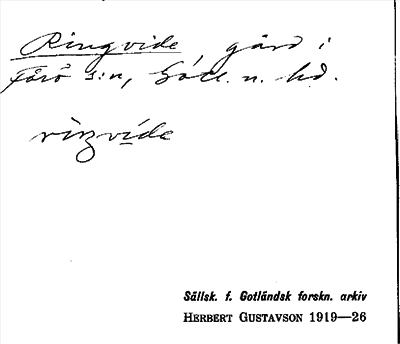 Ringvide, gård i
Fårö s:n, Gotl. n. hd.
riŋvide
Sällsk. f. Gotländsk forskn. arkiv
HERBERT GUSTAVSON 1919—26